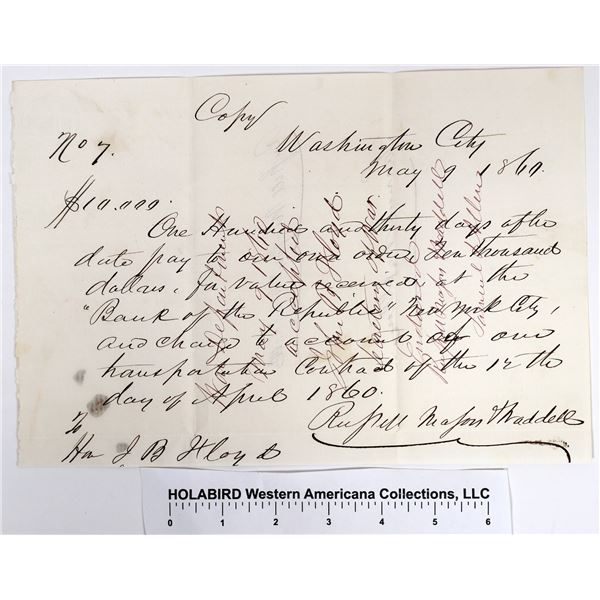 Copy
No 7.
Washington City
May 9 1860.
$10.000.
One Hundred and thirty days after
date pay to our own order Ten thousand
dollars. for value received at the
"Bank of the Republic" New York City,
and charge to account of our
transportation Contract of the 12th
day of April 1860.
Russell Majors & Waddell
To
Hon J B Floyd
War department
May 9 1860
accepted
John B Floyd
Secretary of War
Endorsed
Russell Majors & Waddell
HOLABIRD Western Americana Collections, LLC
0 1 2 3 4 5 6